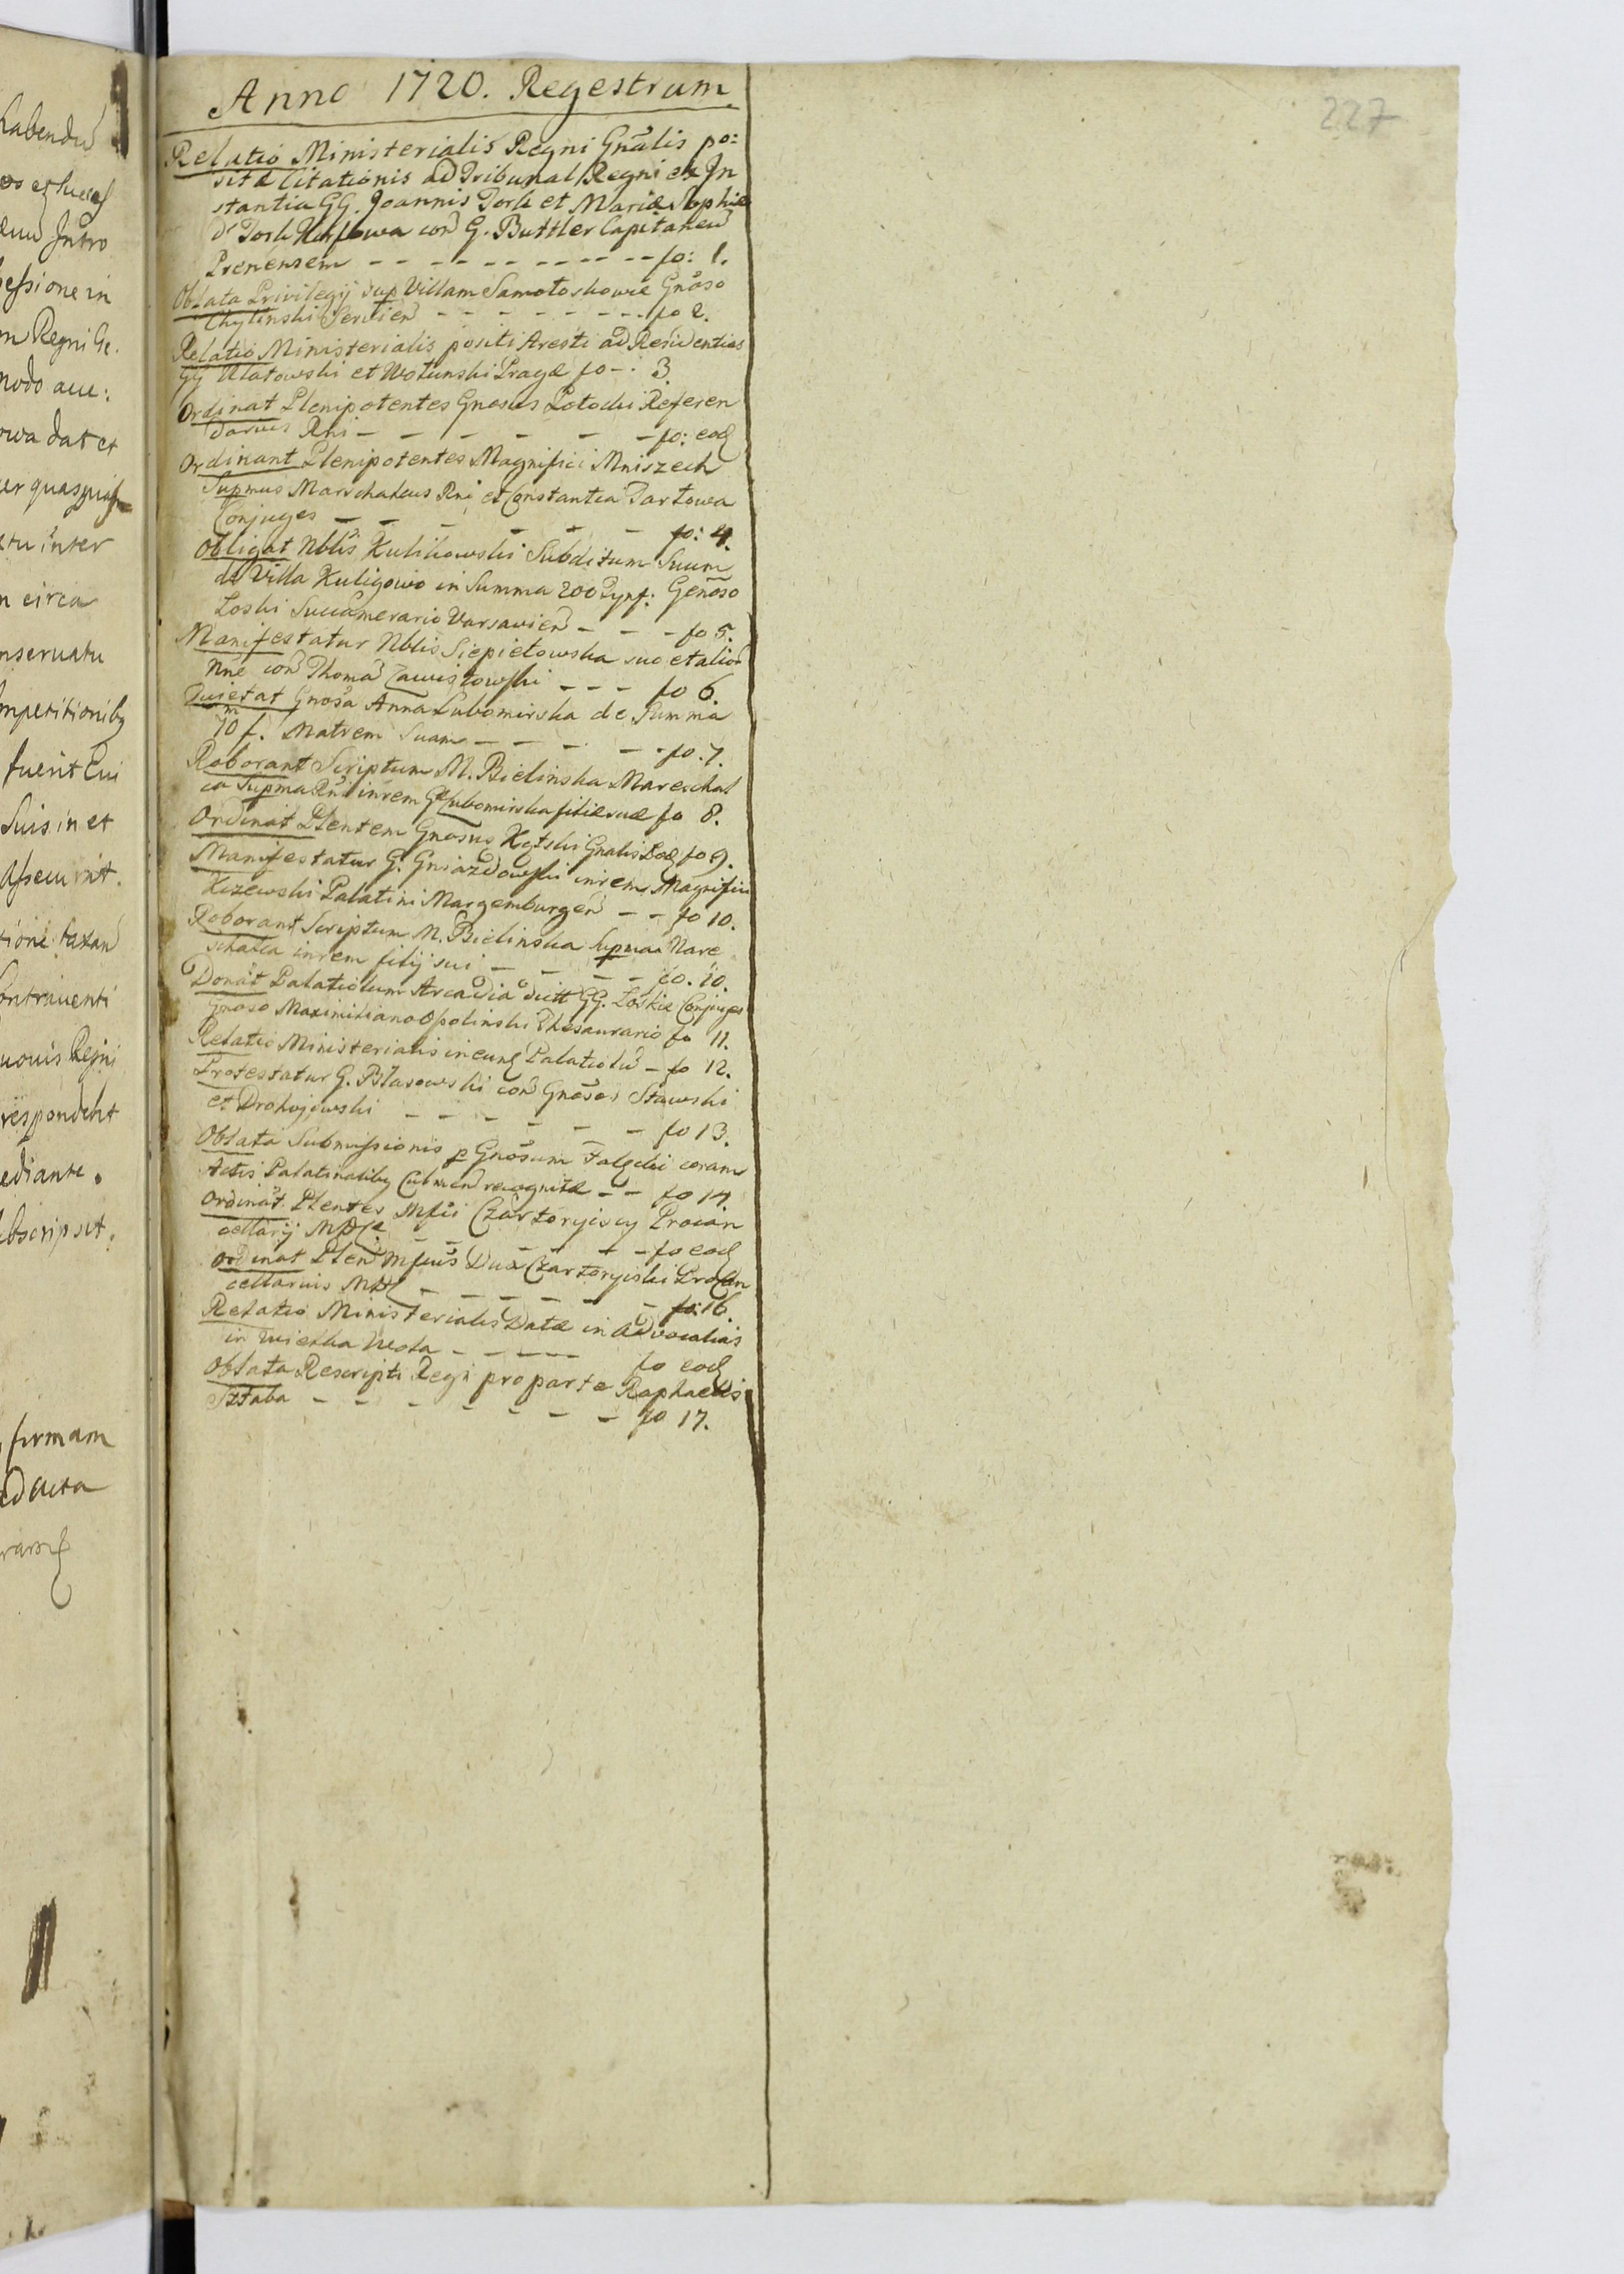 habendũ
eos et Succes
eum Intro
sessione in
m Regni Ge.
modo acce:
owa dat et
er quas
ctu inter
n circa
nservatu
mpetitionibq
fuerit Cui
Suis in et
Assecurit.
tione taxand
Contraventi
uovis Regni
respondebt
ediante.
ubscripsit.
firmam
ed acta
227
Anno 1720. Regestrum
Relatio Ministerialis Regni Gnãlis po:
sitæ Citationis ad Tribunal Regni ex In
stantia GG. Joannis Tork et Mariæ Sophiæ
d Tork con G. Buttler Capitaneũ
Prenensem - - - - - - - - - - fo: 1.
Oblata Privilegij sup Villam Samotoskowie Gnõso
Chylinski Servien - - - - - - - fo 2.
Relatio Ministerialis positi Aresti ad Residenties
GG Ulatowski et Wolunski Pragæ fo -. 3.
Ordinat Plenipotentes Gnosus Potocki Referen
darius Rni - - - - - - fo: eod
Ordinant Plenipotentes Magnifici Mniszech
Supmus Marschalcus Rni et Constantia Tartowa
Conjuges - - - - - - fo: 4.
Obligat Nblis Kulikowski Subditum Suum
de Villa Kuligowo in Summa 200 Tynf: Genõso
Loski Succamerario Varsavien - - - fo 5.
Manifestatur Nblis Siepietowska suo et aliod
nne con Thomã Zawistowski - - - fo 6.
Quietat Gnosa Anna Lubomirska de Summa
70 m f. Matrem Suam - - - - - fo. 7.
Roborant Scriptum M. Bielinska Mareschal
ca Supma Rni in rem G Lubomirska filiæ suæ fo 8.
Ordinat Plentem Gnosus Kętski Gnalis Pod fo 9.
Manifestatur G. Gniazdowski in rem Magnifici
Kczewski Palatini Margemburgen - - fo 10.
Roborant Scriptum M. Bielinska Supma Mare
schalca in rem filij sui - - - - - fo. 10.
Donat Palatiolum Arcadia dictt GG. Loskie Conjuges
Gnoso Maximiliano Opolinski Thesaurario fo 11.
Relatio Ministerialis in eund Palatiolũ - fo 12.
Protestatur G. Blasowski con Gnosos Stawski
et Drohojowski - - - - - - fo 13.
Oblata Submissionis p Gnosum Falęcki coram
Actis Palatinalibq Culmen recognitæ - - fo 14.
Ordinat Plentes Mfici Czartoryiscy Procan
cellarij MDL - - - - - - fo eod
Ordinat Plen Mficus Dux Czartoryiski Procan
cellarius MDL - - - - - - fo: 16.
Relatio Ministerialis Datæ in Advocatias
in Wielka Wola - - - - - fo eod
Oblata Rescripti Regi pro parte Raphaelis
Sztaba - - - - - - - fo 17.